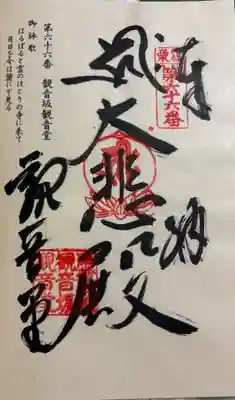 奉拝
第六十六番
大悲殿
第六十六番 観音坂観音堂
御詠歌
はるばると雲のほとりの寺に来て
月日を今は麓にぞ見る
観音堂
観音坂
観音堂